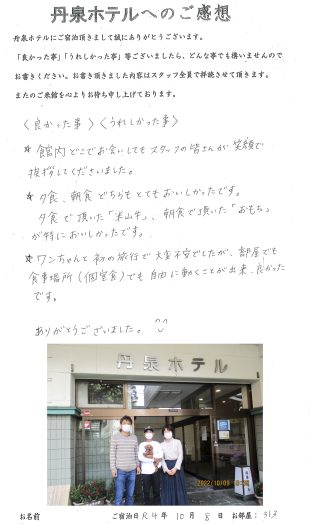 丹泉ホテルへのご感想
丹泉ホテルにご宿泊頂きまして誠にありがとうございます。
「良かった事」「うれしかった事」等ございましたら、どんな事でも構いませんので
お書きください。お書き頂きました内容はスタッフ全員で拝読させて頂きます。
またのご来館を心よりお待ち申し上げております。
〈良かった事〉〈うれしかった事〉
★ 館内どこでお会いしてもスタッフの皆さんが笑顔で
挨拶してくださいました。
★ 夕食、朝食どちらもとてもおいしかったです。
夕食で頂いた「米山牛」、朝食で頂いた「おもち」
が特においしかったです。
★ ワンちゃんと初の旅行で大変不安でしたが、部屋でも
食事場所(個室食)でも自由に動くことが出来、良かった
です。
ありがとうございました。
丹泉ホテル
2022/10/09
お名前 ご宿泊日 R4年 10月 8日 お部屋: 313